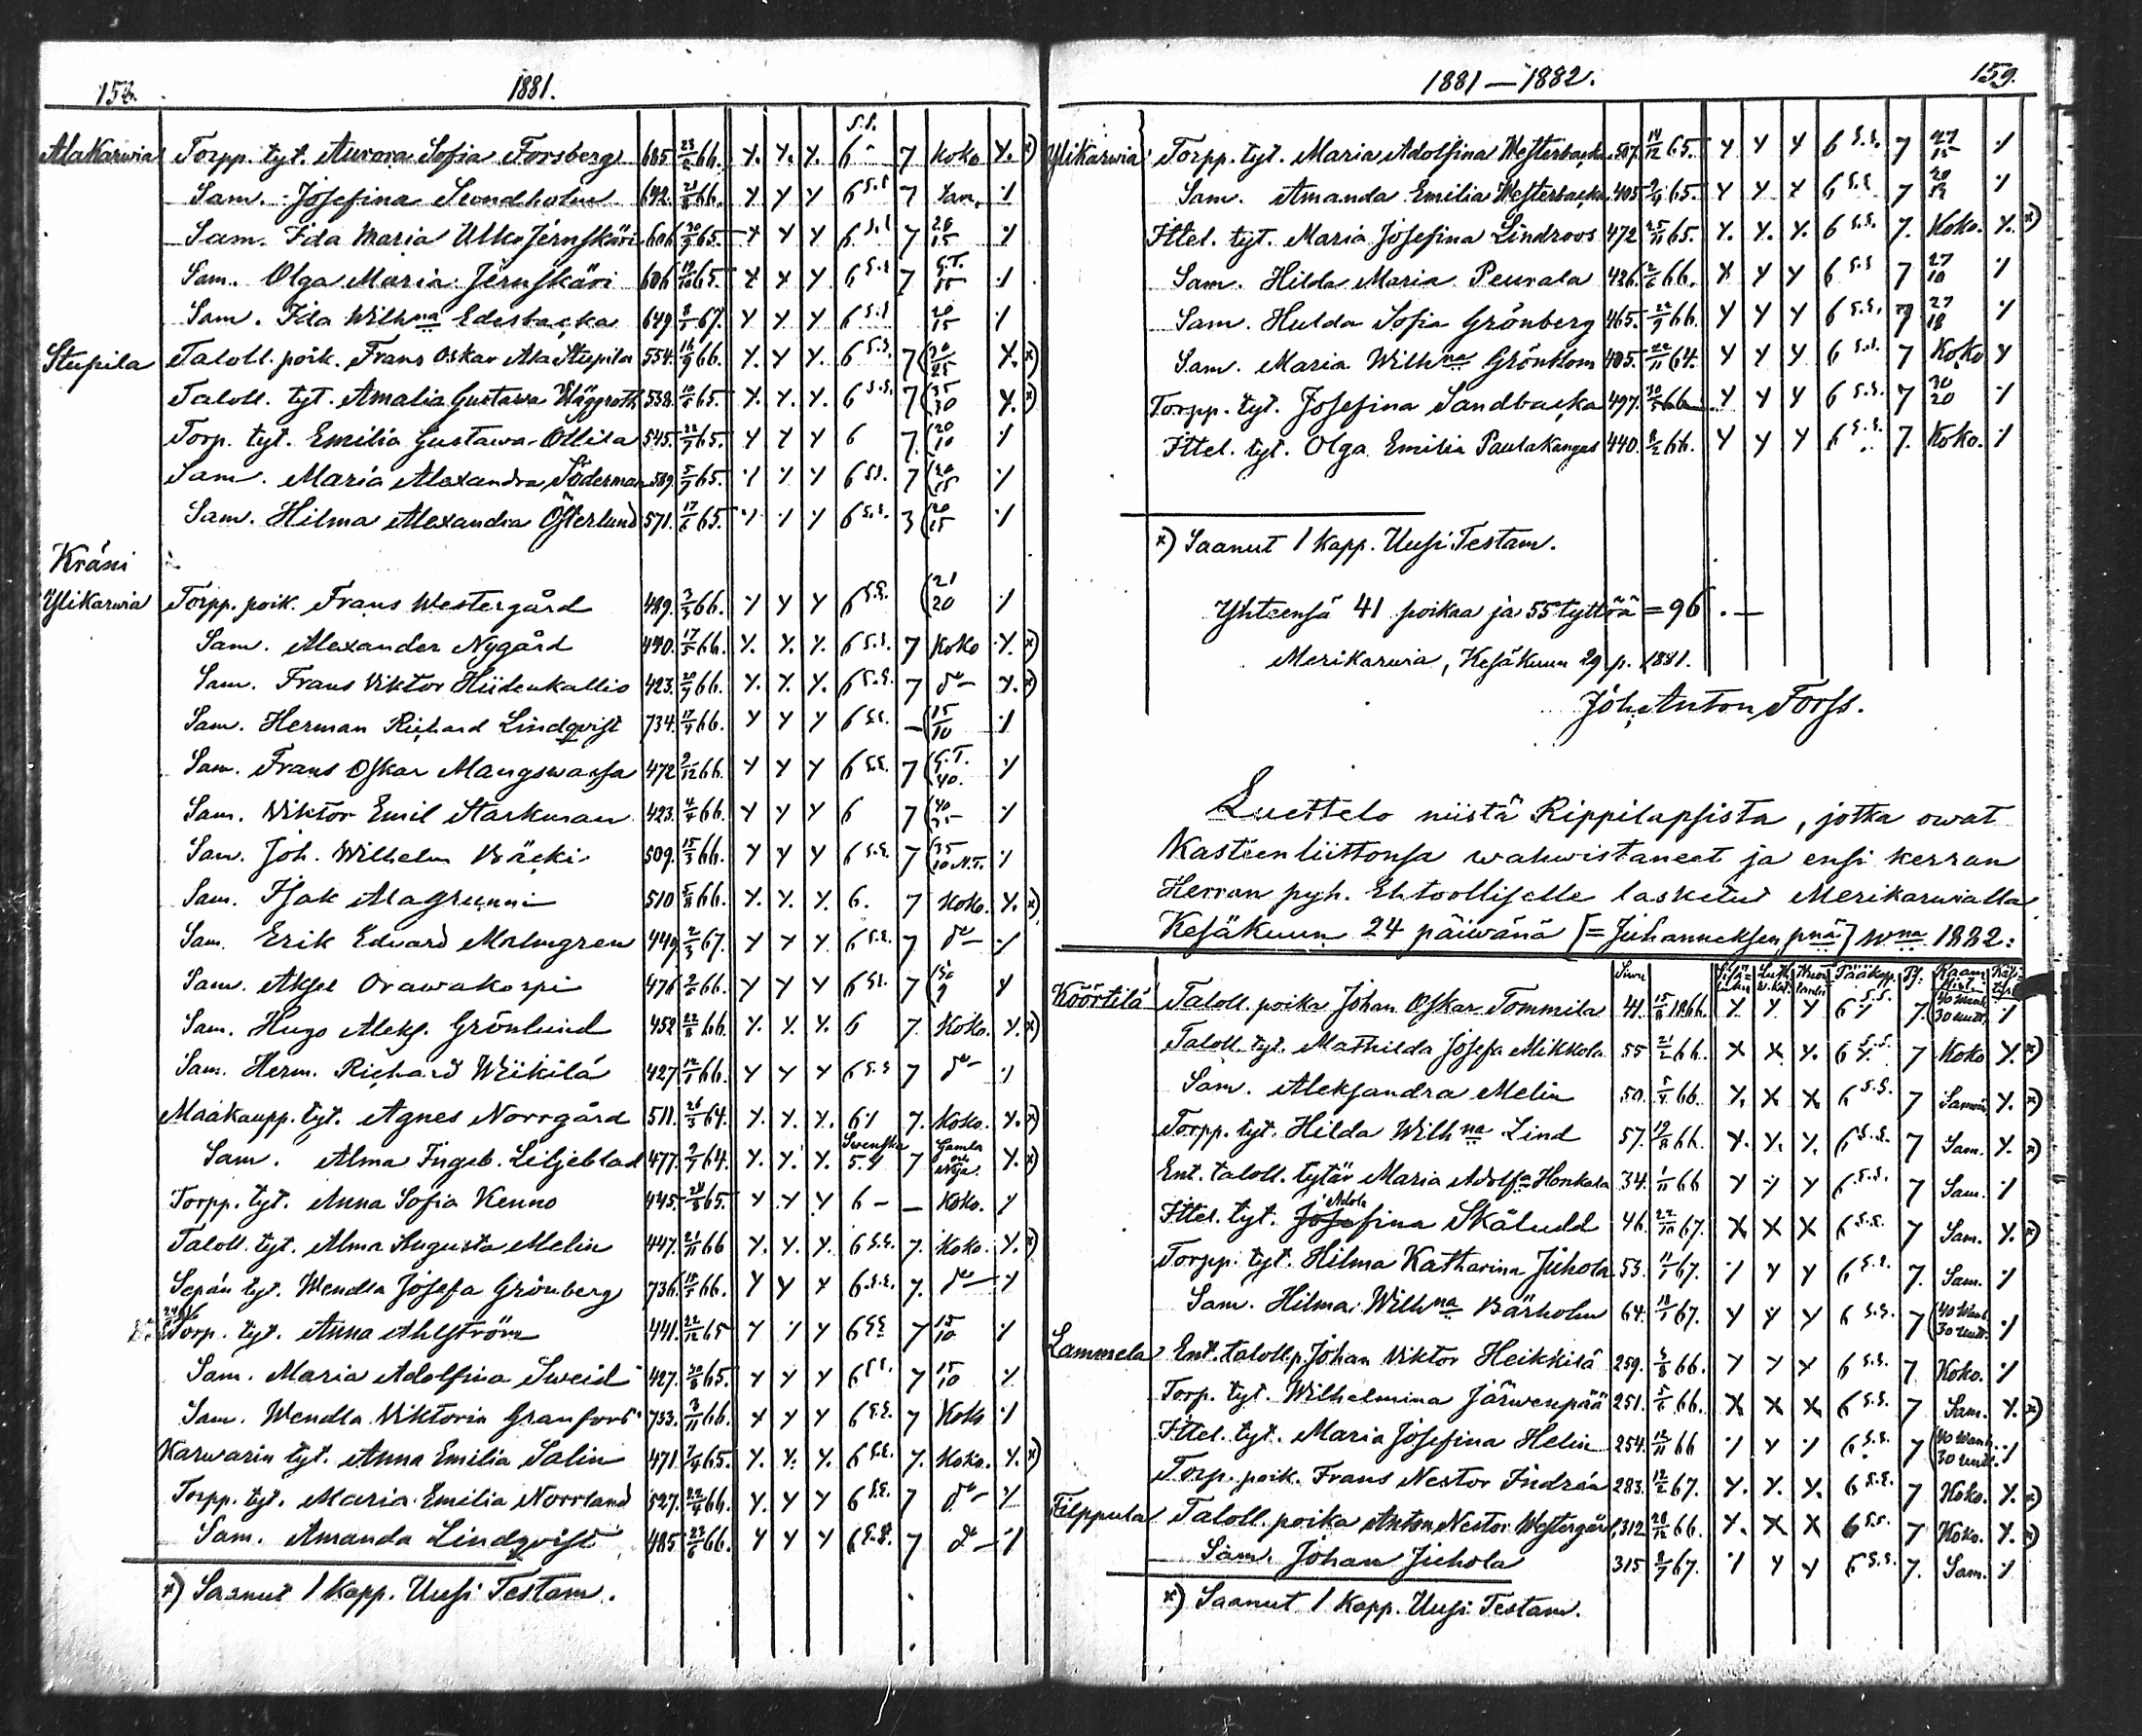 158. 1881.
Alakarwia Torpp. tyt. Aurora Sofia Forsberg 685. 23/2 66. Y. Y. Y. 6 s.s. 7 Koko Y. *)
Sam. Josefina Sondholm 642. 66. Y Y Y 6 s.s 7 Sam. ·/.
Sam. Ida Maria Ulko Jernskäri 606. 65. Y Y Y 6 s.s 7 20/15 ·/.
Sam. Olga Maria Jernskäri 606 65. Y Y Y 6 s.s 7 G.T. ·/.
Sam. Ida Wilhna Edesbacka 649. 67. Y Y Y 6 s.s 20/15 ·/.
Stupila Taloll. poik. Frans Oskar Ala Stupila 554. 16/9 66. Y. Y. Y. 6 s.s. 7 Y. *)
Taloll. tyt. Amalia Gustawa Häggroth 538. 65. Y. Y. Y. 6 s.s. 7 35/30 Y. *)
Torp. tyt. Emilia Gustawa Ollila 545. 65. Y Y Y 6 7. 20/10 ·/.
Sam. Maria Alexandra Söderman 589. 65. Y Y Y 6 s.s. 7 20/15 ·/.
Sam. Hilma Alexandra Österlund 571. 17/6 65. Y Y Y 6 s.s. 3 20/15 ·/.
Kräni
Ylikarwia Torpp. poik. Frans Westergård 489. 66. Y Y Y 6 s.s. 21/20 ·/.
Sam. Alexander Nygård 490. 17/5 66. Y. Y. Y. 6 s.s. 7 Koko Y. *)
Sam. Frans Viktor Hiidenkallio 423. 66. Y. Y. Y. 6 s.s. 7 do Y. *)
Sam. Herman Richard Lindqvist 734. 17/4 66. Y Y Y 6 s.s. – 15/10 ·/.
Sam. Frans Oskar Mangswassa 472 9/12 66. Y Y Y 6 s.s. 7 G.T. 40. ·/.
Sam. Viktor Emil Starkman 423. 66. Y Y Y 6 7 ·/.
Sam. Joh. Wilhelm Bäcki 509. 15/3 66. Y Y Y 6 s.s. 7 35/10 N.T. ·/.
Sam. Isak Alagrunni 510 5/8 66. Y. Y. Y. 6. 7 Koko. Y. *)
Sam. Erik Eduard Malmgren 449. 2/3 67. Y Y Y 6 s.s. 7 do ·/.
Sam. Aksel Orawakospi 476 66. Y Y Y 6 s.s. 7 Y
Sam. Hugo Aleks. Grönlund 452 22/8 66. Y. Y. Y. 6 7. Koko. Y. *)
Sam. Herm. Richard Wiikilä 427 12/1 66. Y Y Y 6 s.s 7 do ·/.
Maakaupp. tyt. Agnes Norrgård 511. 26/3 64. Y. Y. Y. 6 7. Koko. Y. *)
Sam. Alma Ingeb. Liljeblad 477. 64. Y. Y. Y. Swenska 5. 7 Gamla och Nya. Y. *)
Torpp. tyt. Anna Sofia Kenno 445. 65. Y Y Y 6 – – Koko. ·/.
Taloll. tyt. Alma Augusta Melin 447. 21/11 66 Y. Y. Y. 6 s.s. 7. Koko. Y. *)
Sepän tyt. Wendla Josefa Grönberg 736. 66. Y Y Y 6 s.s. 7. do ·/.
Torp. tyt. Anna Ahlström 441. 22/12 65 Y Y Y 6 s.s. 7 15/10 ·/.
Sam. Maria Adolfina Sweid 427. 65. Y Y Y 6 s.s. 7 15/10 ·/.
Sam. Wendla Viktoria Granfors 733. 3/11 66. Y Y Y 6 s.s. 7 Koko ·/.
Karwarin tyt. Anna Emilia Salin 471. 7/4 65. Y. Y. Y. 6 s.s. 7. Koko. Y. *)
Torpp. tyt. Maria Emilia Norrland 527. 66. Y. Y Y 6 s.s. 7 do ·/.
Sam. Amanda Lindqvist 485 23/6 66. Y Y Y 6 s.s. 7 do ·/.
*) Saanut 1 kapp. Uusi Testam.
1881—1882. 159.
Ylikarwia Torpp. tyt. Maria Adolfina Westerbacka 507. 14/12 65. Y Y Y 6 s.s. 7 27/15 ·/.
Sam. Amanda Emilia Westerbacka 405. 65. Y Y Y 6 s.s 7 ·/.
Ittel. tyt. Maria Josefina Lindroos 472 25/11 65. Y. Y. Y. 6 s.s. 7. Koko. Y. *)
Sam. Hilda Maria Peurala 426. 66. Y Y Y 6 s.s 7 27/10 ·/.
Sam. Hulda Sofia Grönberg 465. 22/9 66. Y Y Y 6 s.s. 7 27/18 ·/.
Sam. Maria Wilhna Grönblom 405. 22/11 64. Y Y Y 6 s.s. 7 Koko Y
Torpp. tyt. Josefina Sandbacka 497. 30/5 66 Y Y Y 6 s.s. 7 30/20 ·/.
Ittel. tyt. Olga Emilia Paulakangas 440. 8/2 66. Y Y Y 6 s.s. 7. Koko. ·/.
*) Saanut 1 kapp. Uusi Testam.
Yhteensä 41 poikaa ja 55 tyttöä = 96. —
Merikarwia, Kesäkuun 29 p. 1881.
Joh. Anton Forss.
Luettelo niistä Rippilapsista, jotka owat
Kasteenliittonsa wahwistaneet ja ensi kerran
Herran pyh. Ehtoolliselle lasketut Merikarwialla
Kesäkuun 24 päiwänä [= Juhanneksen pnä] wna 1882:
Siwu Pääkapp. Pj.
Köörtilä Taloll. poika Johan Oskar Tommila 41. 15/8 1866. Y Y Y 6 s.s. 7. 40 Wanh. 30 Uutt. ·/.
Taloll. tyt. Mathilda Josefa Mikkola 55 21/2 66. X X Y. 6 s.s. 7 Koko Y. *)
Sam. Aleksandra Melin 50. 66. Y. X X 6 s.s. 7 Samoin Y. *)
Torpp. tyt. Hilda Wilhna Lind 57. 19/8 66. Y. Y. Y. 6 s.s. 7 Sam. Y. *)
Ent. taloll. tytär Maria Adolfa Honkala 34. 1/11 66 Y Y Y 6 s.s. 7 Sam. ·/.
Ittel. tyt. Josefina Adole Skåludd 46. 22/10 67. X X X 6 s.s. 7 Sam. Y. *)
Torpp. tyt. Hilma Katharina Juhola 53. 11/1 67. Y Y Y 6 s.s. 7. Sam. ·/.
Sam. Hilma Wilhna Bärholm 64. 18/1 67. Y Y Y 6 s.s. 7 40 Wanh. 30 Uutt. ·/.
Lammela Ent. taloll. p. Johan Viktor Heikkilä 259. 66. Y Y Y 6 s.s. 7 Koko. ·/.
Torp. tyt. Wilhelmina Järwenpää 251. 5/6 66. X X X 6 s.s. 7 Sam. Y. *)
Ittel. tyt. Maria Josefina Helin 254. 12/11 66 Y Y Y 6 s.s. 7 40 Wanh. 30 Uutt. ·/.
Torp. poik. Frans Nestor Indrén 283. 12/2 67. Y. Y. Y. 6 s.s. 7 Koko. Y. *)
Filppula Taloll. poika Anton Nestor Westergård 312 28/12 66. Y. X X 6 s.s. 7 Koko. Y. *)
Sam. Johan Juhola 315 67. Y Y Y 6 s.s. 7. Sam. ·/.
*) Saanut 1 kapp. Uusi Testam.